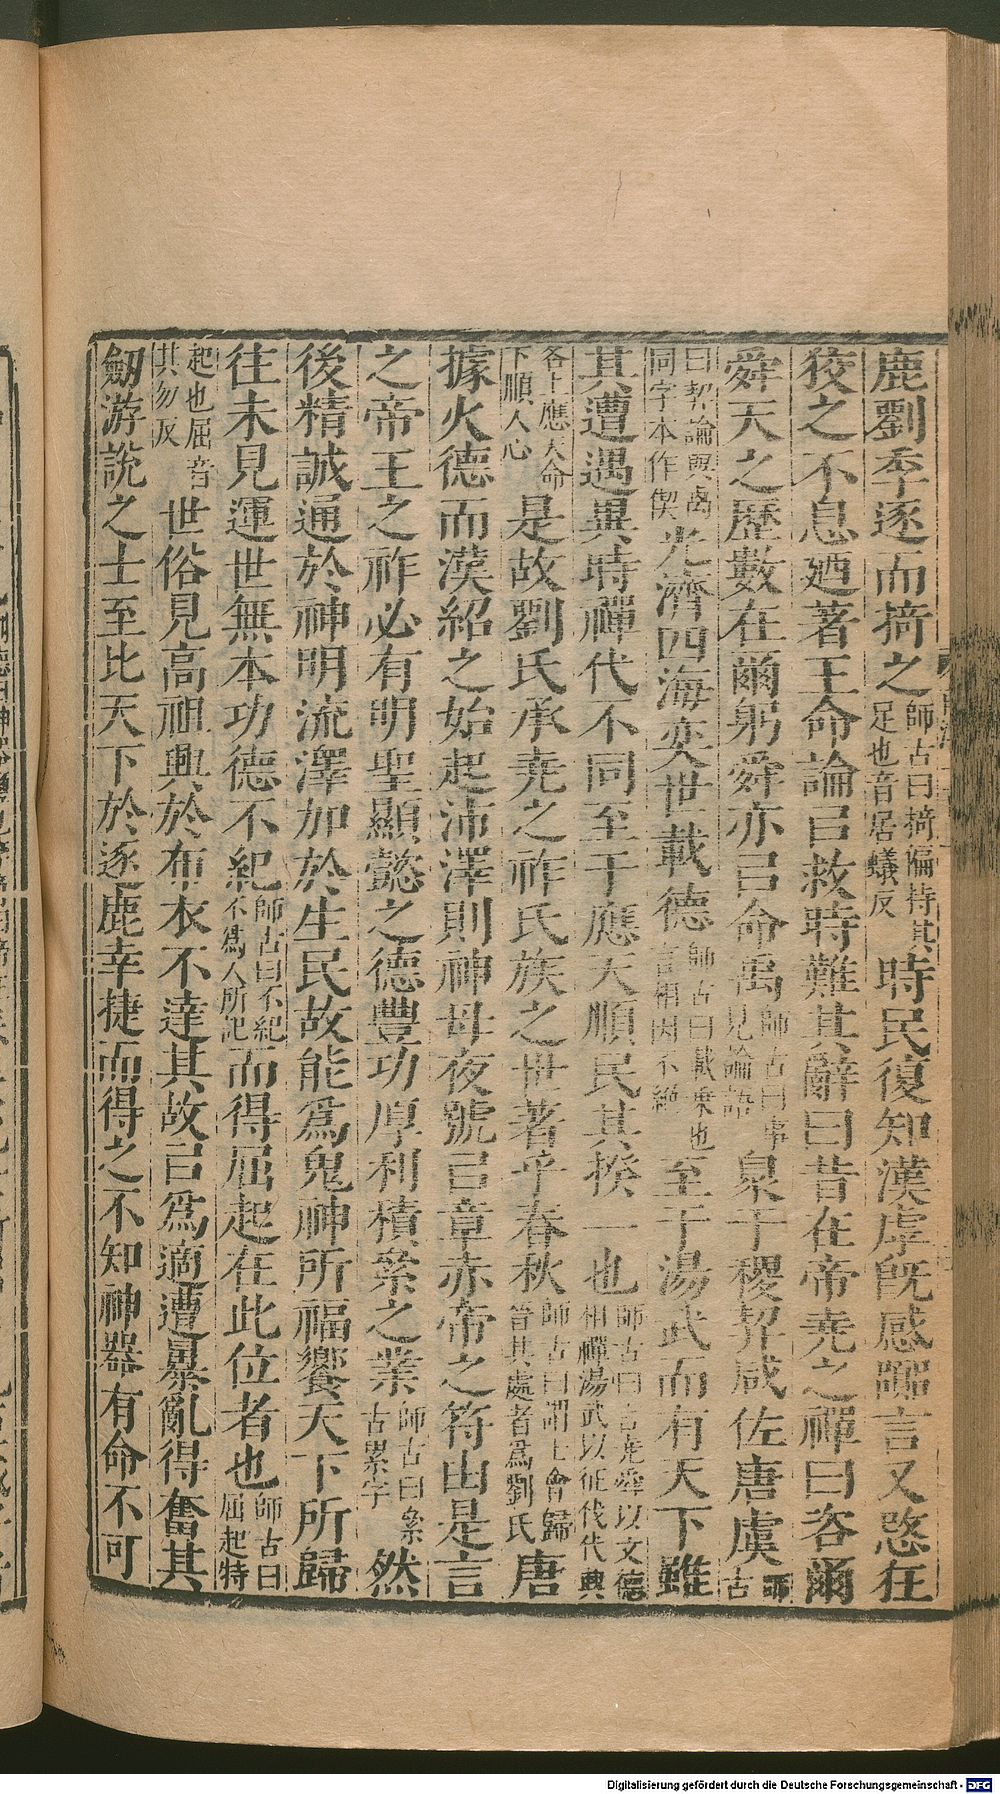 鹿劉季逐而掎之師古曰掎偏持其足也音居蟻反時民復知漢虖旣感嚻言又愍狂
狡之不息廼著王命論㠯救時難其辭曰昔在帝堯之禪曰咨爾
舜天之歷數在爾躬舜亦㠯命禹師古曰事見論語泉于稷契咸佐唐虞師古
曰契論與卨同字本作偰光濟四海奕世載德師古曰載乘也言相因不絶至于湯武而有天下雖
其遭遇異時禪代不同至于應天順民其揆一也師古曰言堯舜以文德相禪湯武以征伐代興
各上應天命下順人心是故劉氏承堯之祚氏族之世著乎春秋師古曰謂士會歸晉其處者爲劉氏唐
據火德而漢紹之始起沛澤則神母夜號㠯章赤帝之符由是言
之帝王之祚必有明聖顯懿之德豐功厚利積絫之業師古曰絫古累字然
後精誠通於神明流澤加於生民故能爲鬼神所福饗天下所歸
往未見運世無本功德不紀師古曰不紀不爲人所記而得屈起在此位者也師古曰屈起特
起也屈音其勿反世俗見高祖興於布衣不達其故㠯爲適遭暴亂得奮其
劒游說之士至比天下於逐鹿幸捷而得之不知神器有命不可
Digitalisierung gefördert durch die Deutsche Forschungsgemeinschaft - DFG